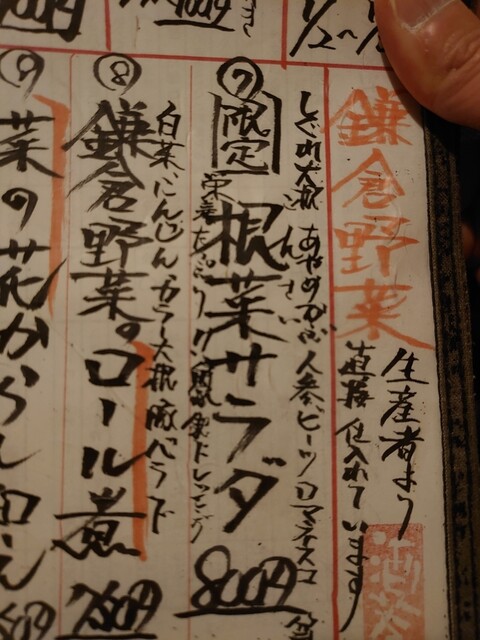 鎌倉野菜
生産者より
直接仕入れています
しぐれ大根 あやめかぶ 人参 ビーツ ロマネスコ
⑦ 限定 根菜サラダ 800円
こんさい
栄養たっぷり
ドレッシング
白菜、にんじん、カラー大根、豚バラ
⑧ 鎌倉野菜のロール煮 780円
⑨ 菜の花からし和え